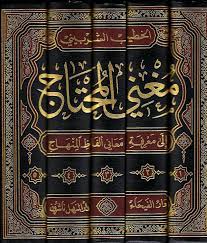 الخطيب الشربيني
مغني المحتاج
إلى معرفة معاني ألفاظ المنهاج
٥ ٤ ٣ ٢ ١
دار الفيحاء